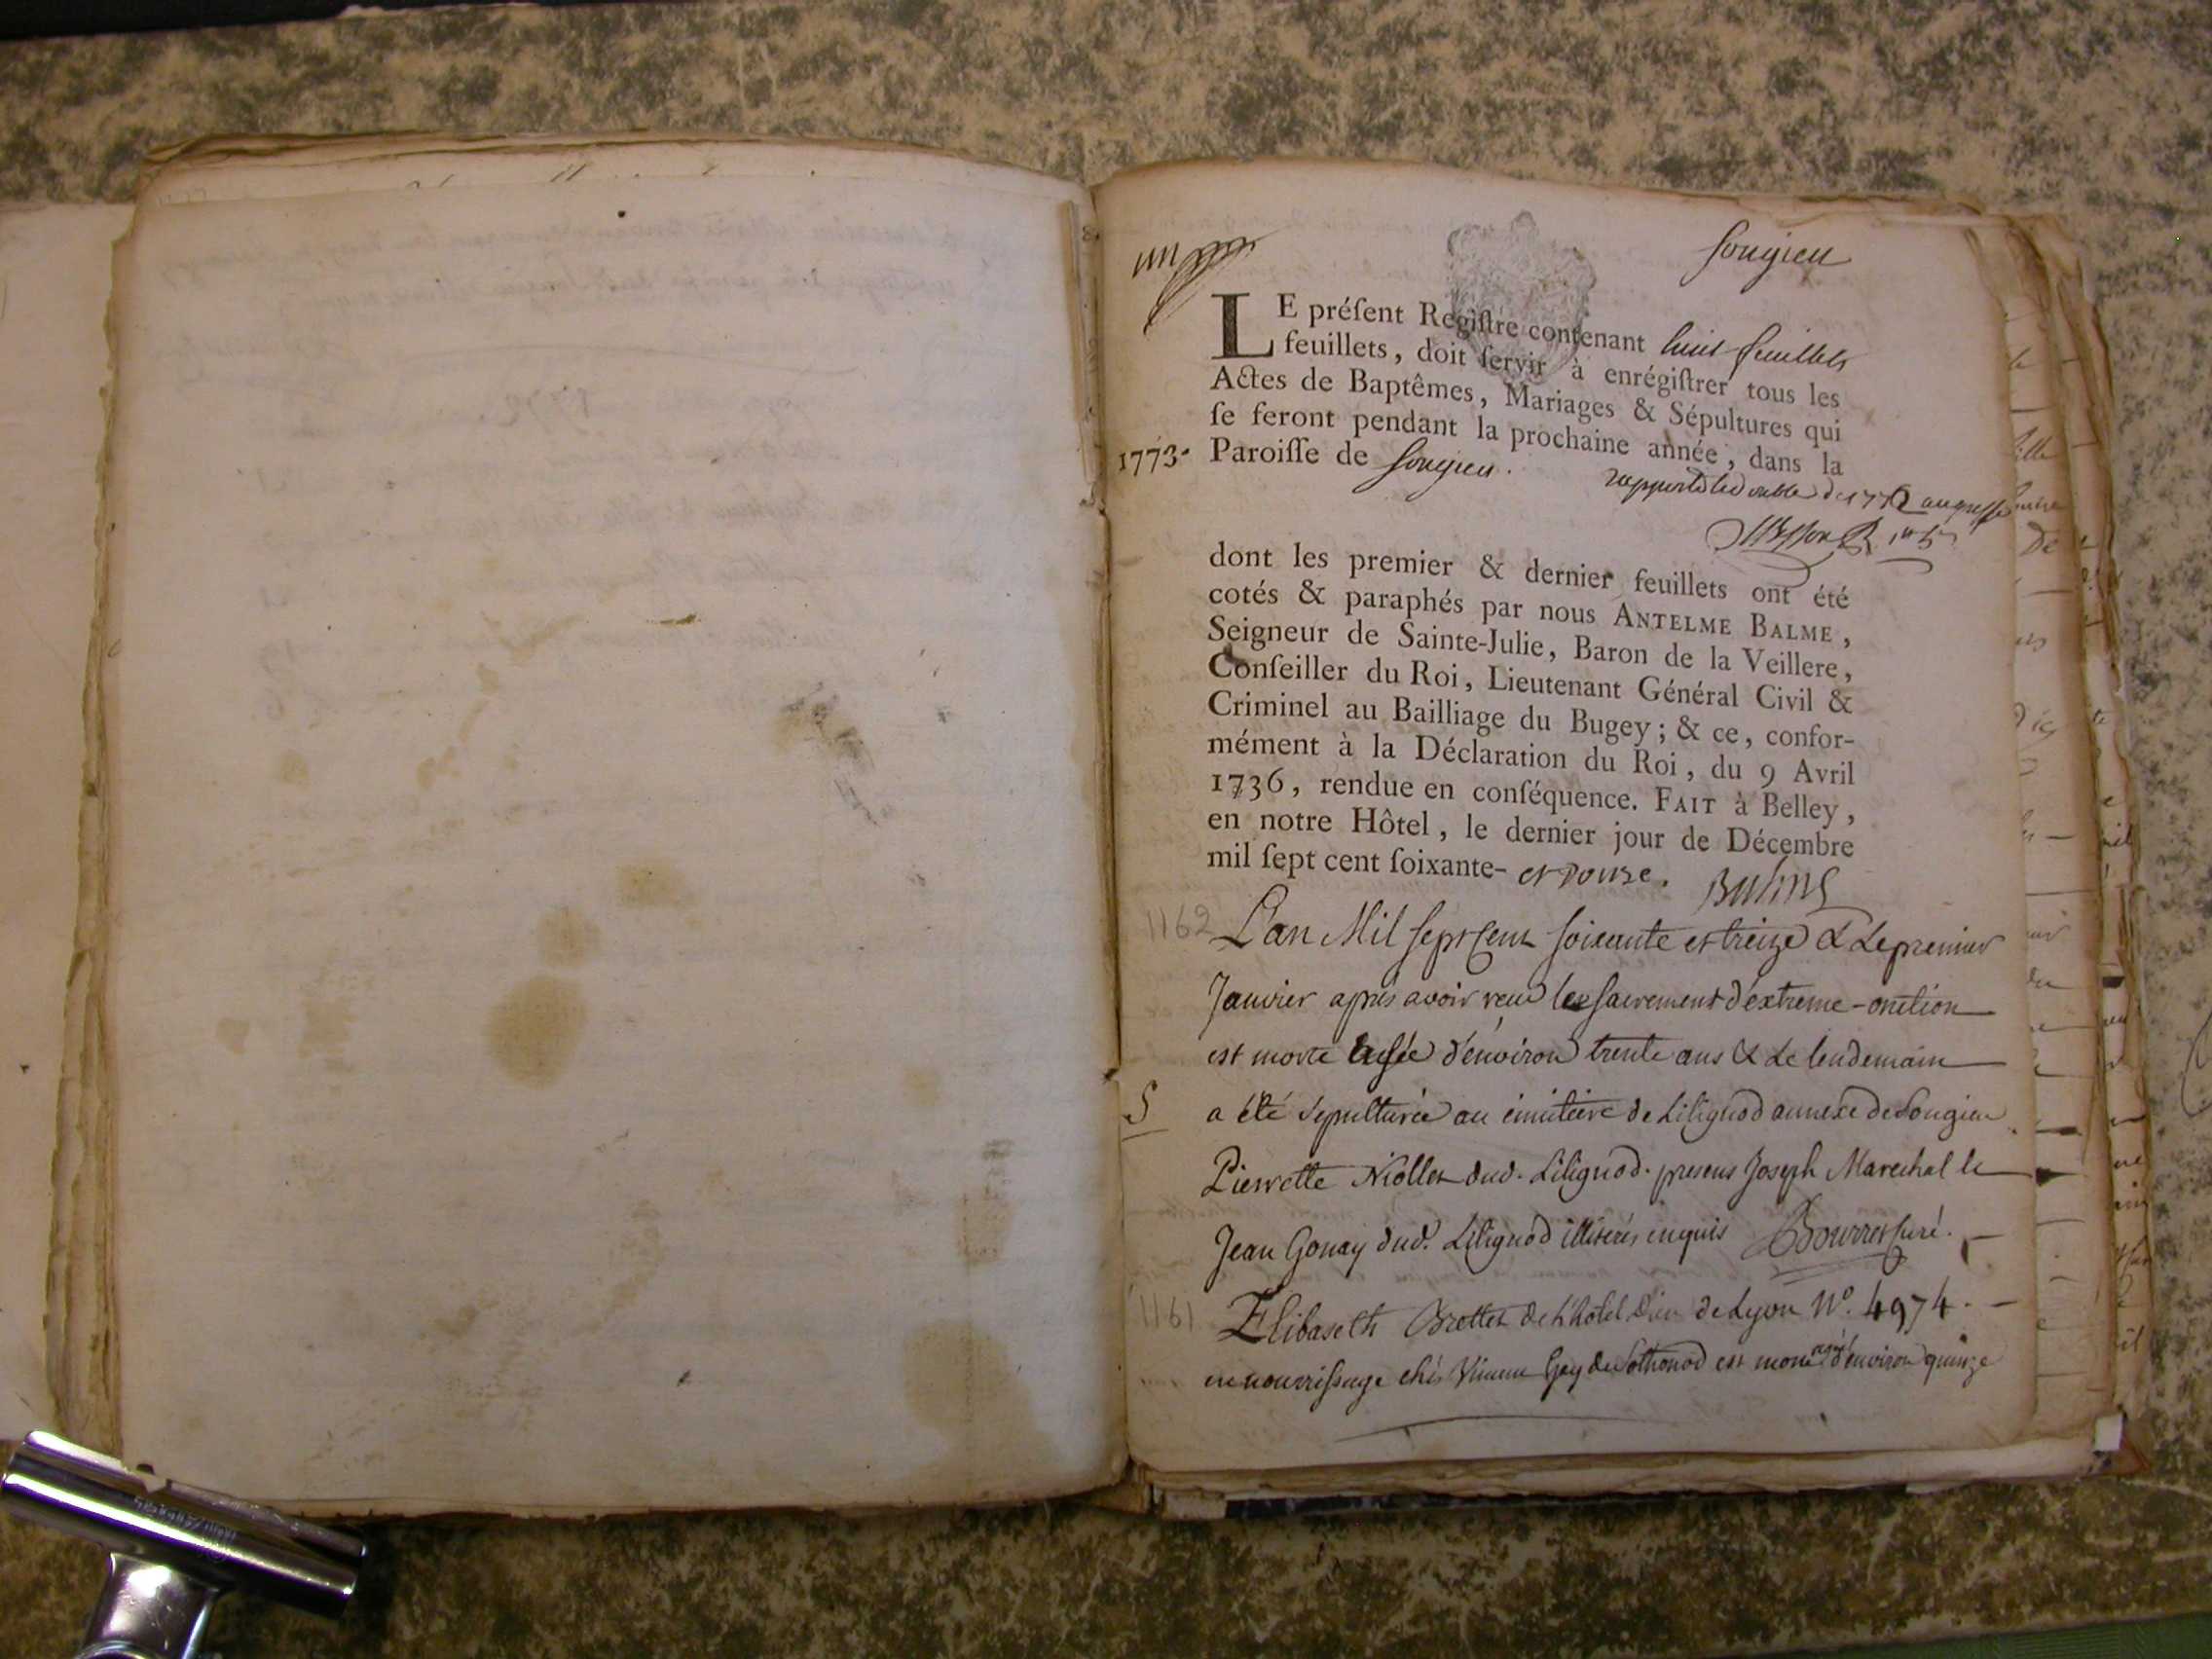 Songieu
LE préſent Regiſtre contenant huit feuillets
feuillets, doit ſervir à enrégiſtrer tous les
Actes de Baptêmes, Mariages & Sépultures qui
ſe feront pendant la prochaine année, dans la
1773. Paroiſſe de Songieu.
rapporté le double de 1772 au greffe
dont les premier & dernier feuillets ont été
cotés & paraphés par nous ANTELME BALME,
Seigneur de Sainte-Julie, Baron de la Veillere,
Conſeiller du Roi, Lieutenant Général Civil &
Criminel au Bailliage du Bugey; & ce, confor-
mément à la Déclaration du Roi, du 9 Avril
1736, rendue en conſéquence. FAIT à Belley,
en notre Hôtel, le dernier jour de Décembre
mil ſept cent ſoixante- et douze. Balme
1162 L'an Mil sept cent soixante et treize & Le premier
Janvier après avoir reçu les sacrement d'extreme-onction
est morte agée d'environ trente ans & Le lendemain
S a été sepulturée au cimitiere de Lilignod annexe de Songieu
Pierrette Niollet dud. Lilignod. presens Joseph Marechal le
Jean Gonay dud. Lilignod illiterés enquis Bourret curé.
1161 Elibaseth Brettet de L'hôtel Dieu de Lyon N°. 4974.
en nourrissage chés Vincent Gey de Sothonod est morte agée d'environ quinze